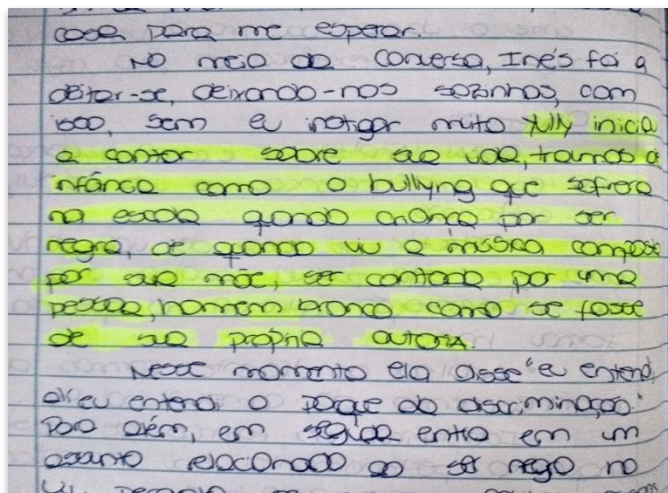 casa para me esperar.
No meio da conversa, Inês foi a
deitar-se, deixando-nos sozinhos, com
isso, sem eu instigar muito Yully inicia
a contar sobre sua vida, traumas da
infância como o bullying que sofrera
na escola quando criança por ser
negra, de quando viu a música composta
por sua mãe, ser cantada por uma
pessoa, homem branco como se fosse
de sua própria autoria.
Nesse momento ela disse "eu entendi,
ali eu entendi o porque da discriminação."
Para além, em seguida entro em um
assunto relacionado ao ser negro no